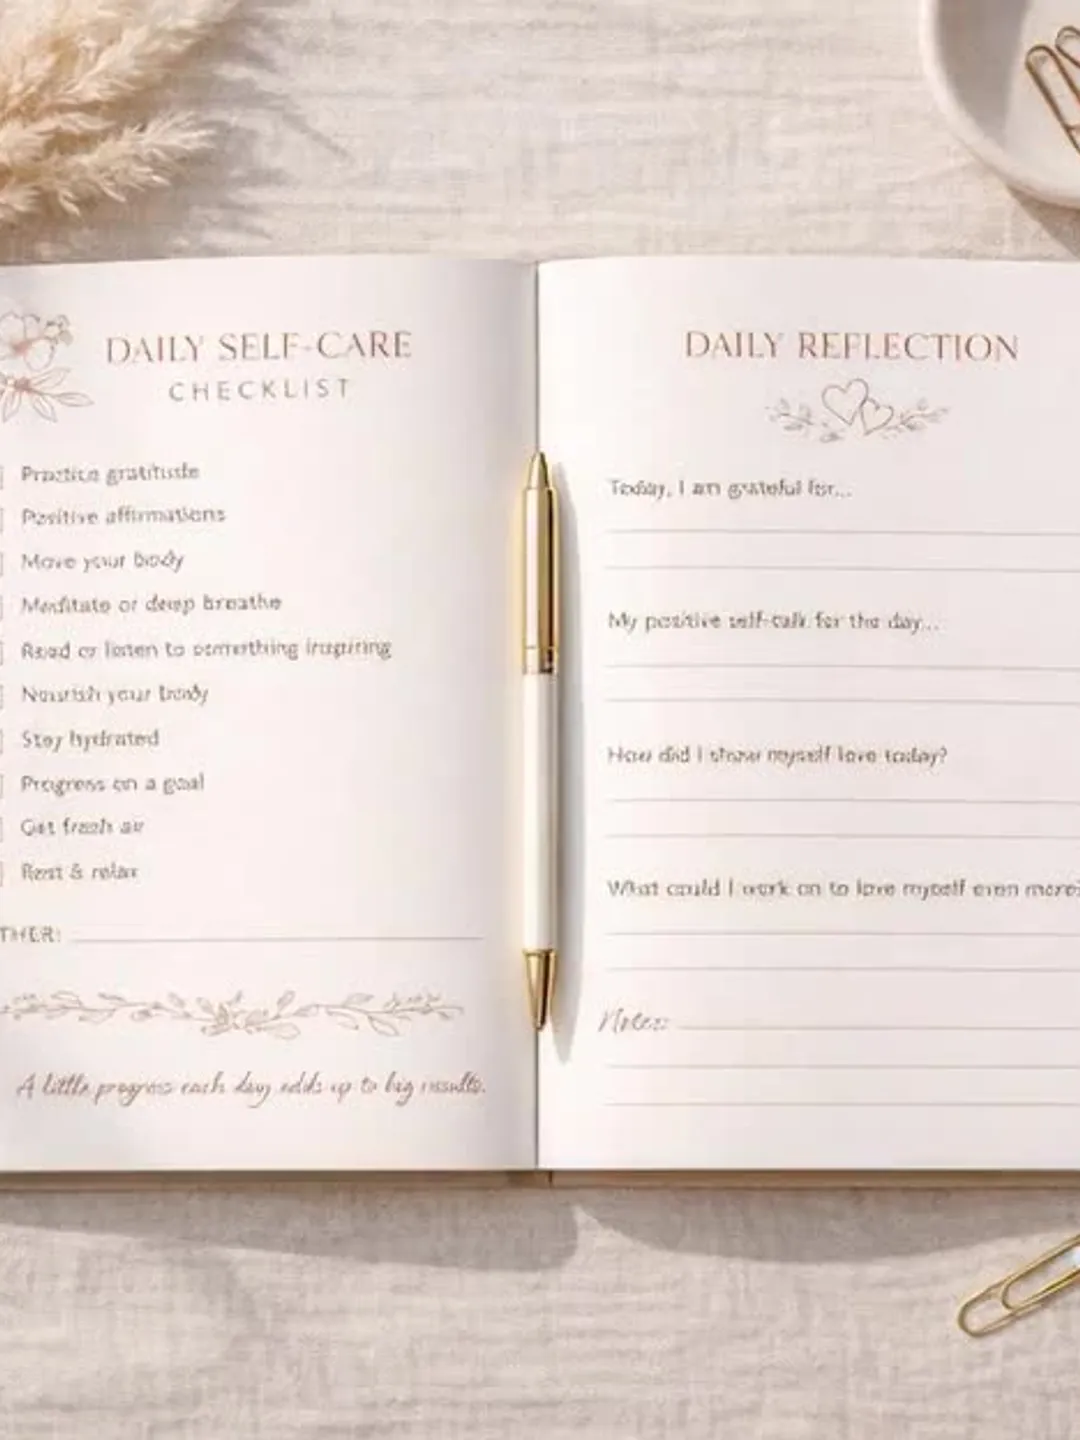 DAILY SELF-CARE
CHECKLIST
Practice gratitude
Positive affirmations
Move your body
Meditate or deep breathe
Read or listen to something inspiring
Nourish your body
Stay hydrated
Progress on a goal
Get fresh air
Rest & relax
THER:
A little progress each day adds up to big results.
DAILY REFLECTION
Today, I am grateful for...
My positive self-talk for the day...
How did I show myself love today?
What could I work on to love myself even more?
Notes: